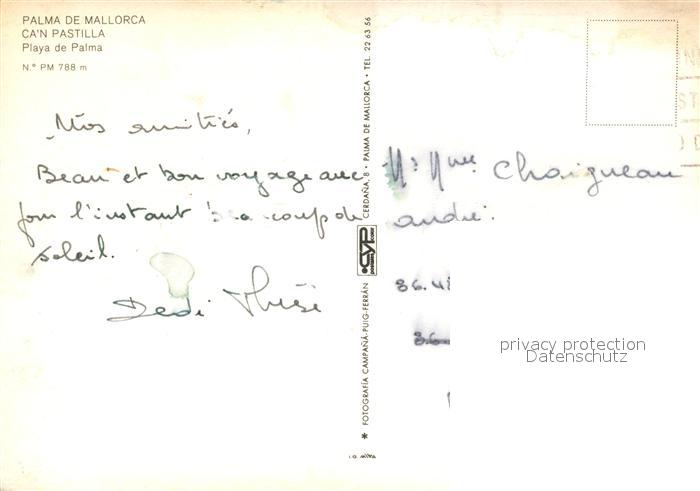 PALMA DE MALLORCA
CA'N PASTILLA
Playa de Palma
N.° PM 788 m
Mes amitiés,
Beau et bon voyage avec
pour l'instant beaucoup de
soleil.
Dedi
* FOTOGRAFÍA CAMPAÑÁ-PUIG-FERRÁN
CYP
CERDAÑA, 8 • PALMA DE MALLORCA • TEL. 22 63 56
Mr Mme Chaigneau
andré.
36.
36
privacy protection
Datenschutz